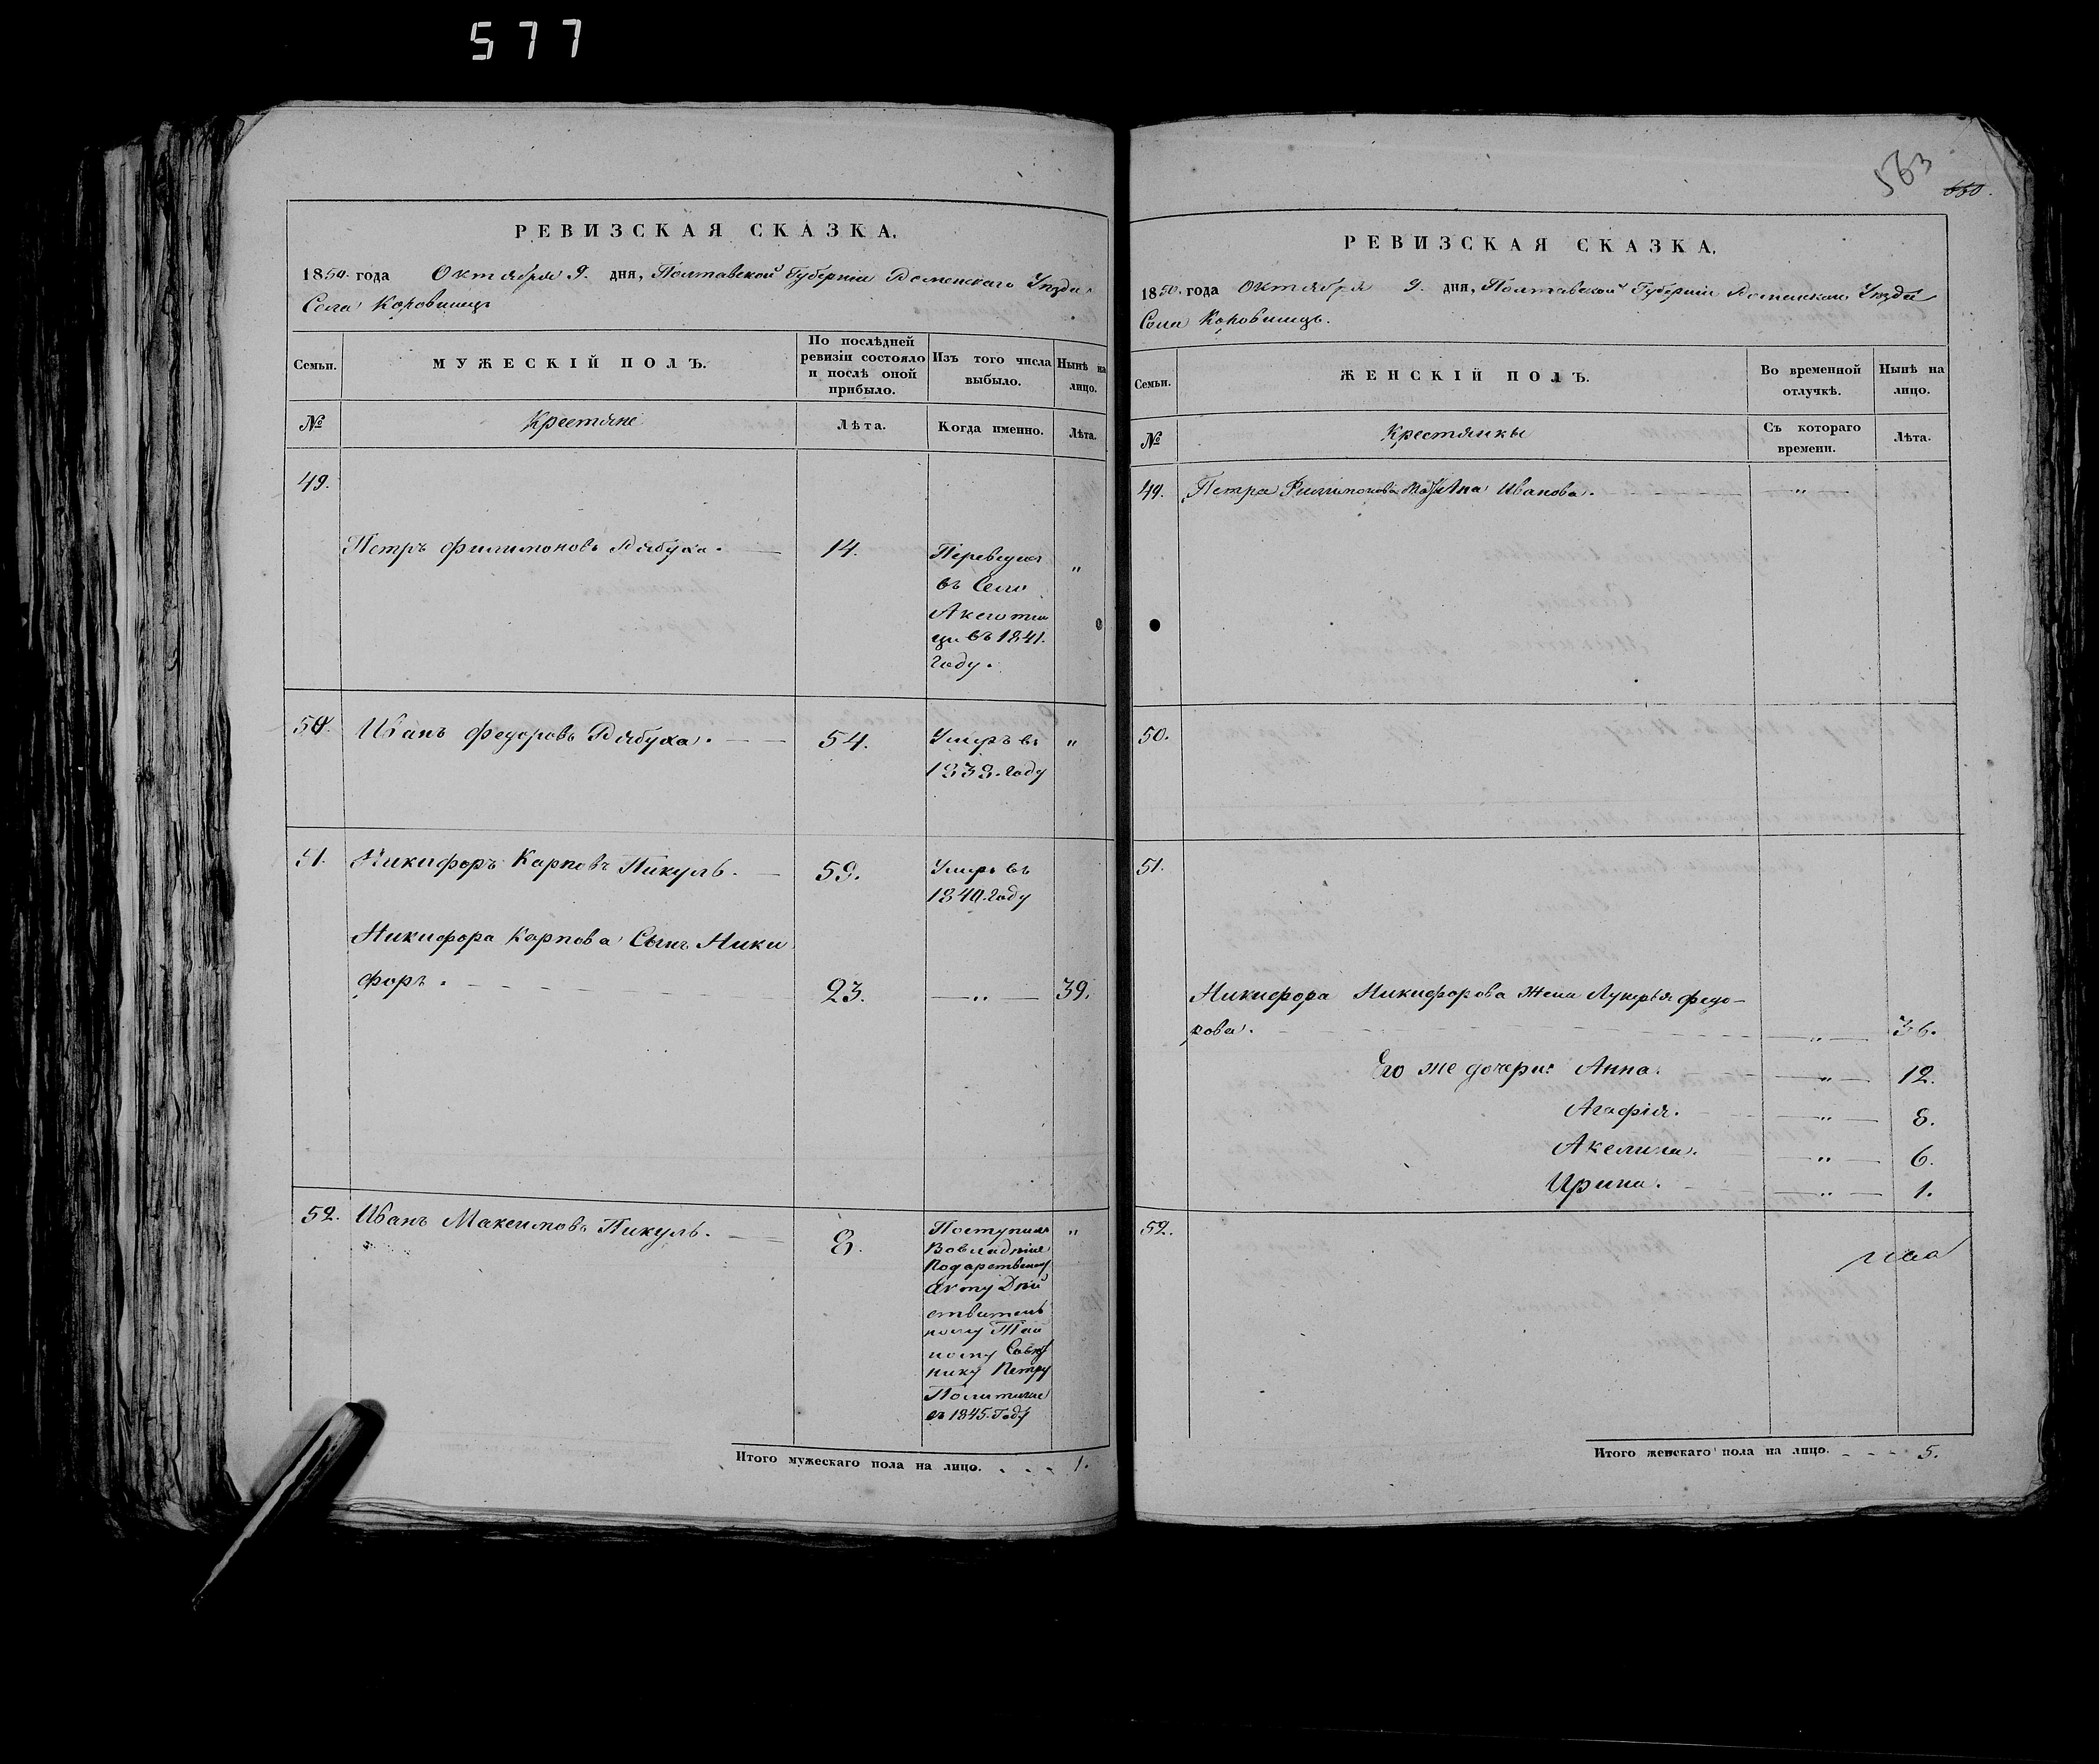 577
РЕВИЗСКАЯ СКАЗКА.
1850. года Октября 9. дня, Полтавской Губерніи Роменскаго Уѣзда
Села Коровинецъ
Семьи.
МУЖЕСКІЙ ПОЛЪ.
По послѣдней ревизіи состояло и послѣ оной прибыло.
Изъ того числа выбыло.
Нынѣ на лицо.
№
Крестяне
Лѣта.
Когда именно.
Лѣта.
49.
Петръ Филимоновъ Рябуха. 14. "
Переведен
въ Село
Аксютин
цы въ 1841.
году.
50. Иванъ Федоровъ Рябуха. 54. Умеръ въ "
1838. году
51. Никифоръ Карповъ Пикуль. 59. Умеръ въ
1840. году
Никифора Карпова Сынъ Ники
форъ. 23. " 39.
52. Иванъ Максимовъ Пикуль. 8. Поступилъ "
Вовладѣніе
Подарственному
Акту Дѣй
ствитель
ному Тай
ному Совѣт
нику Петру
Полетике
въ 1845. Году
Итого мужескаго пола на лицо. 1.
563
550.
РЕВИЗСКАЯ СКАЗКА.
1850. года Октября 9. дня, Полтавской Губерніи Роменскаго Уѣзда
Села Коровинецъ.
Семьи.
ЖЕНСКІЙ ПОЛЪ.
Во временной отлучкѣ.
Нынѣ на лицо.
№
Крестянкы
Съ котораго времени.
Лѣта.
49. Петра Филимонова Мать Анна Иванова. "
50.
51.
Никифора Никифорова Жена Лукерья Федо-
рова. " 36.
Его же дочери: Анна. " 12.
Агафія. " 8.
Акелина. " 6.
Ирина. " 1.
52.
Итого женскаго пола на лицо. 5.